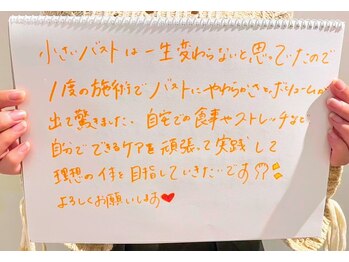 小さいバストは一生変わらないと思っていたので
1度の施術でバストにやわらかさとボリュームが
出て驚きました。自宅での食事やストレッチなど
自分でできるケアを頑張って実践して
理想の体を目指していきたいです
よろしくお願いします❤